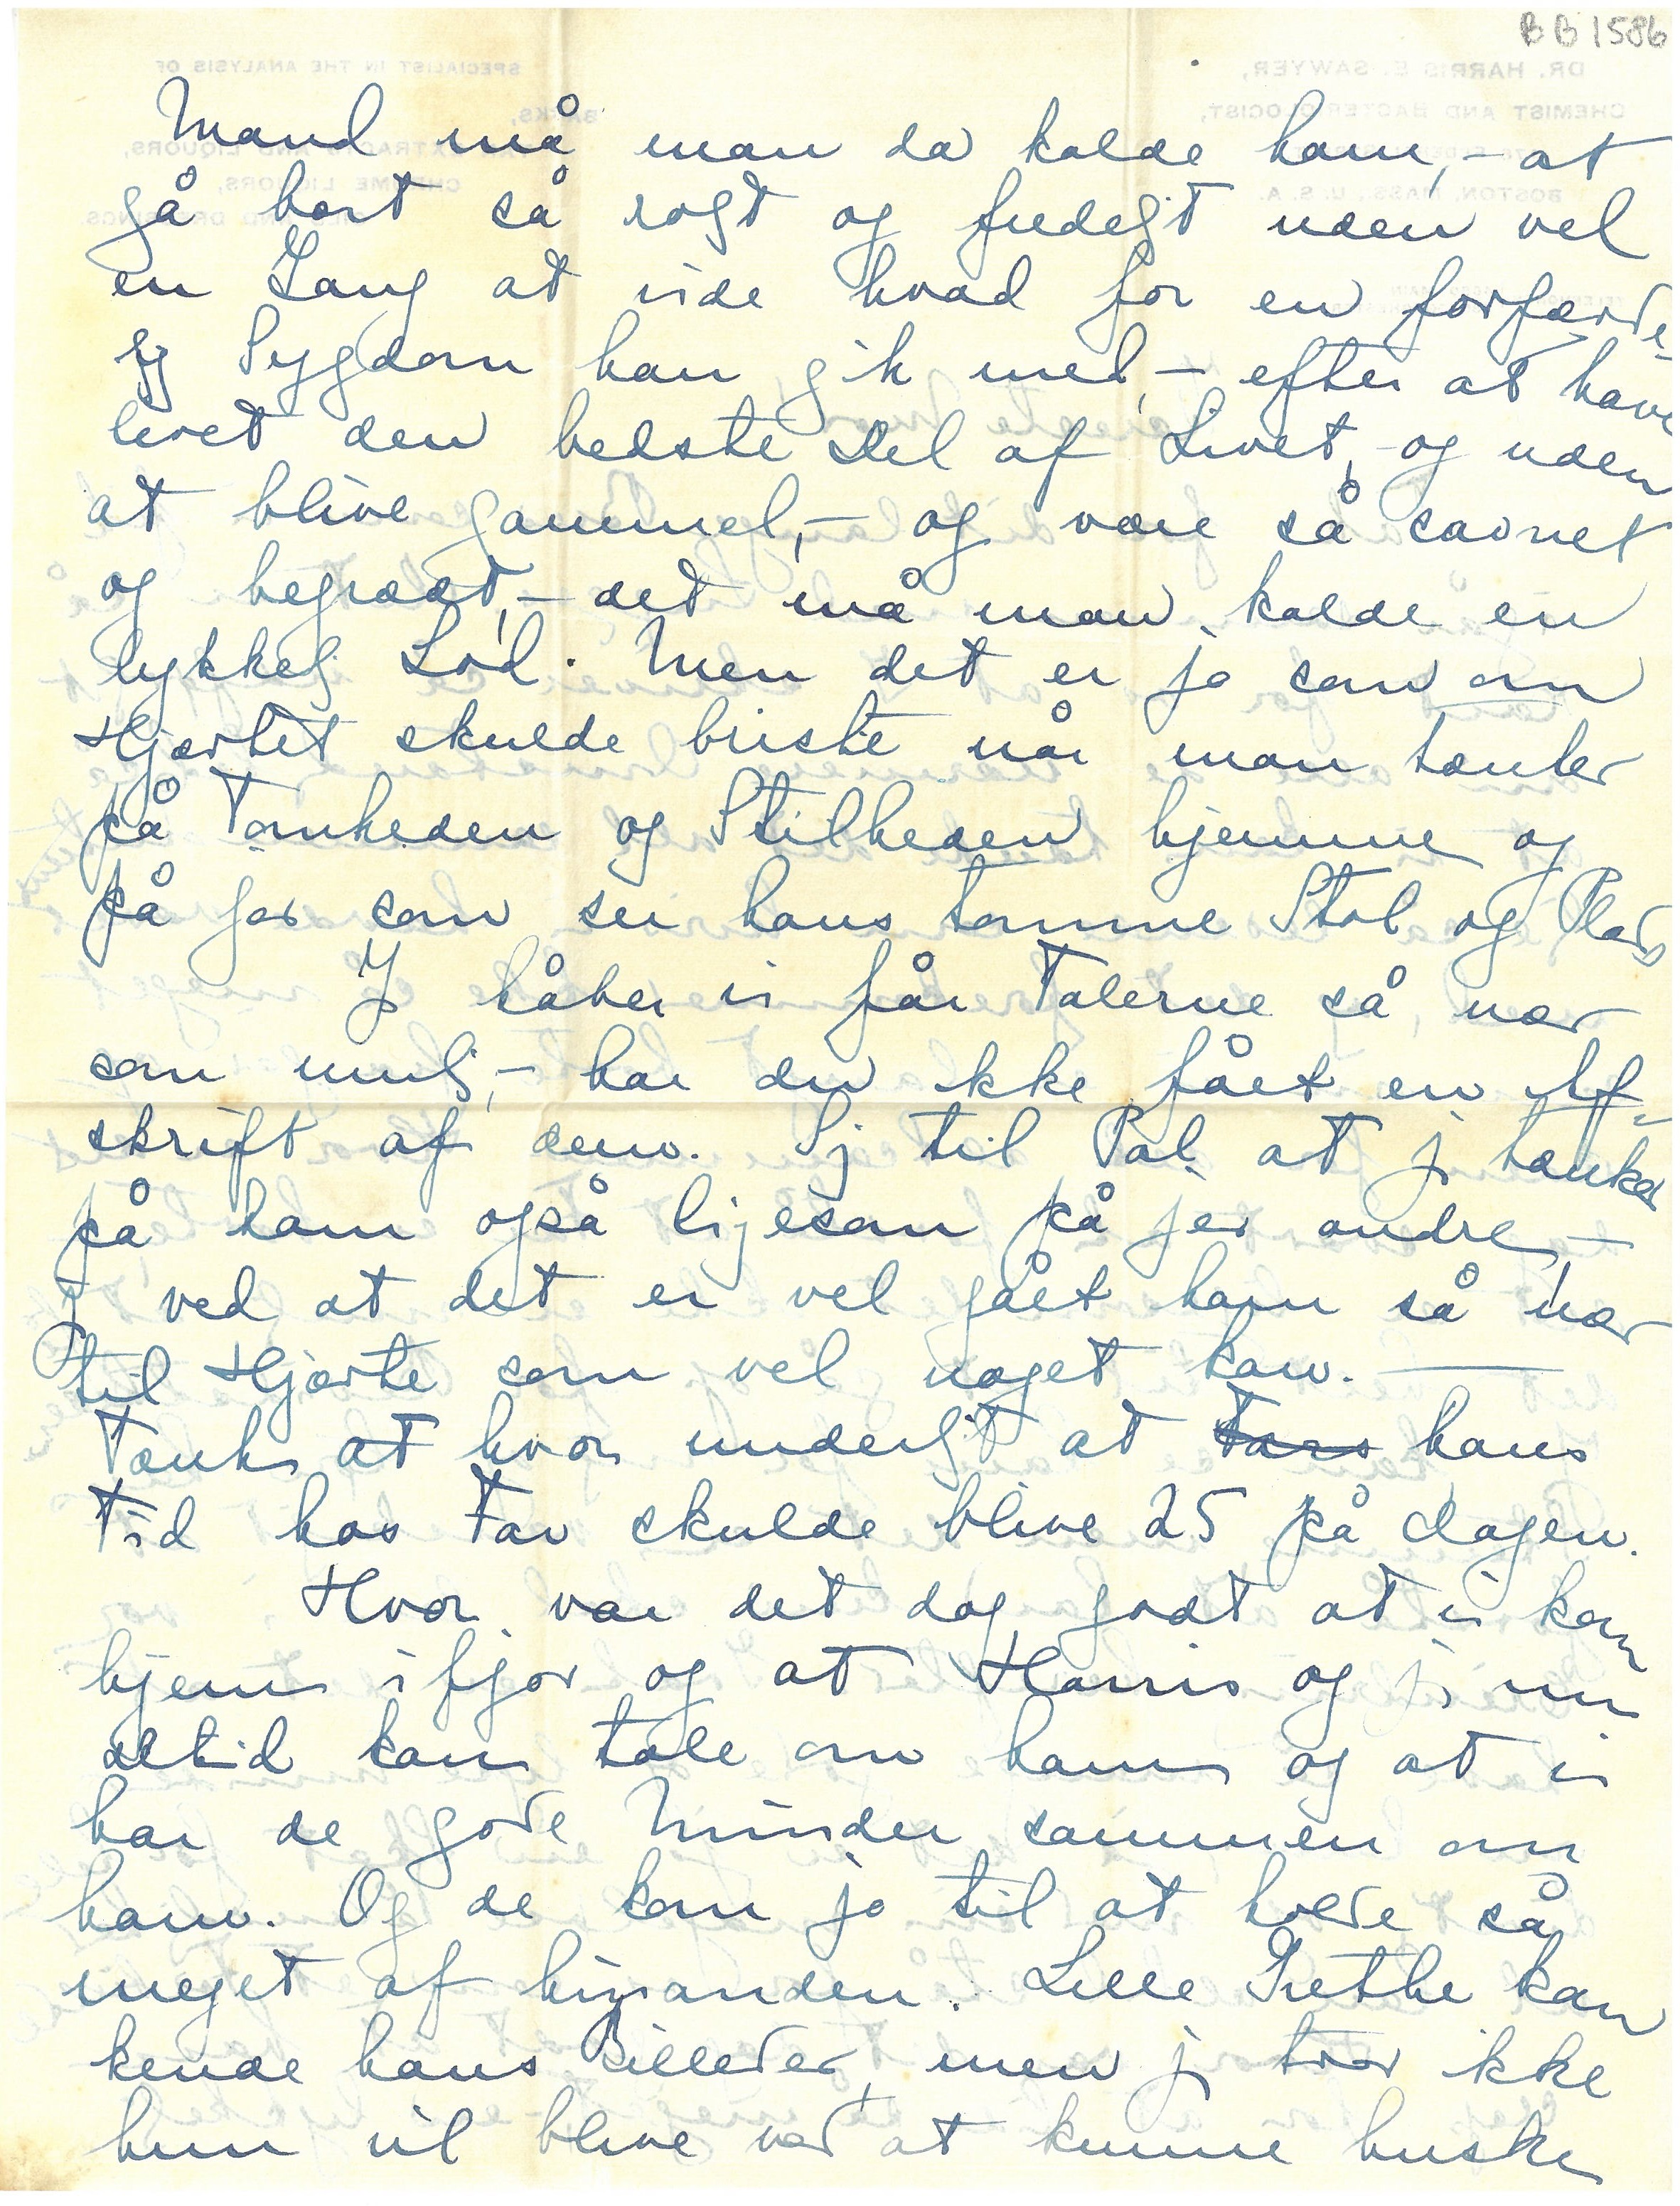 BB 1586
Mand må man da kalde ham, - at
gå bort så roligt og fredeligt uden vel
en Gang at vide hvad for en forfærde-
lig Sygdom han gik med, - efter at have
levet den bedste Del af Livet, - og uden
at blive gammel, - og være så savnet
og begrædt, - det må man kalde en
lykkelig Lod. Men det er jo som om
Hjærtet skulde briste når man tænker
på Tomheden og Stilheden hjemme og
på jer som ser hans tomme Stol og Plads
Jeg håber vi får Talerne så nær
som mulig, - har du ikke fået en Af-
skrift af dem. Sig til Pal. at jeg tænker
på ham også ligesom på jer andre, -
jeg ved at det er vel gået ham så nær
til Hjærte som vel noget kan. -
Tænk at hvor underligt at Fars hans
Tid hos Far skulde blive 25 på dagen.
Hvor var det dog godt at vi kom
hjem ifjor og at Harris og jeg nu
altid kan tale om ham og at vi
har de gode Minder sammen om
ham. Og de kom jo til at holde så
meget af hinanden. Lille Grethe kan
kende hans Billeder, men jeg tror ikke
hun vil blive ved at kunne huske